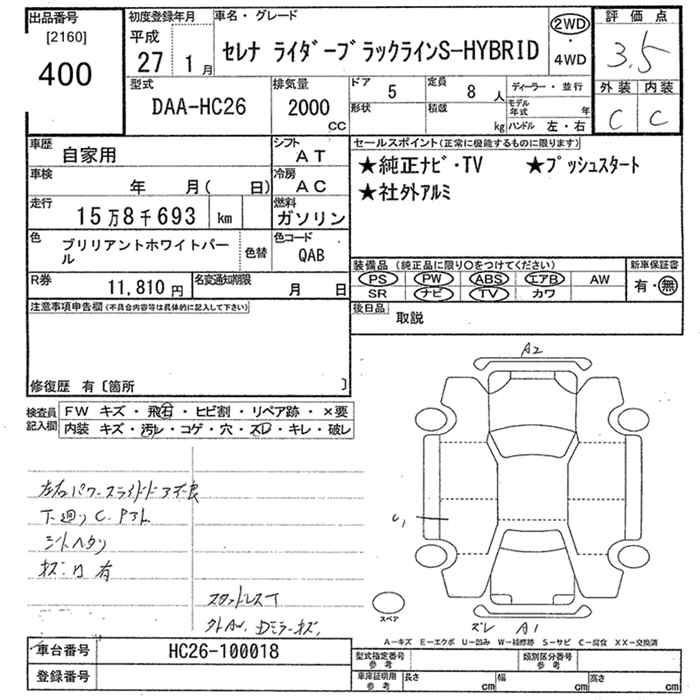 出品番号
[2160]
400
初度登録年月
平成
27 1月
車名・グレード
セレナ ライダーブラックラインS-HYBRID
2WD
・
4WD
評価点
3.5
外装 内装
C C
型式
DAA-HC26
排気量
2000
CC
ドア 5
定員 8人
形状
積載 kg
ディーラー・並行
モデル年式 年
ハンドル 左・右
車歴 自家用
シフト AT
車検 年 月( 日)
冷房 AC
走行 15万8千693 km
燃料 ガソリン
色 ブリリアントホワイトパール
色替
色コード QAB
R券 11,810円
名変通知期限 月 日
セールスポイント(正常に機能するものに限ります)
★純正ナビ・TV ★プッシュスタート
★社外アルミ
装備品(純正品に限り〇をつけてください)
PS PW ABS エアB AW
SR ナビ TV カワ
新車保証書
有・無
後日品 取説
注意事項申告欄(不具合内容等は具体的に記入して下さい)
修復歴 有〔箇所 〕
検査員記入欄
FW キズ・飛石・ヒビ割・リペア跡・×要
内装 キズ・汚レ・コゲ・穴・スレ・キレ・破レ
左右パワースライドドア不良
下廻りC、
シートヘタリ
有
スタットレスT
Dミラーキズ,
A2
C1
スペア
ズレ A1
A-キズ E-エクボ U-凹み W-補修跡 S-サビ C-腐食 XX-交換済
車台番号 HC26-100018
登録番号
型式指定番号 参考
類別区分番号 参考
車庫証明用 参考
長さ cm 幅 cm 高さ cm